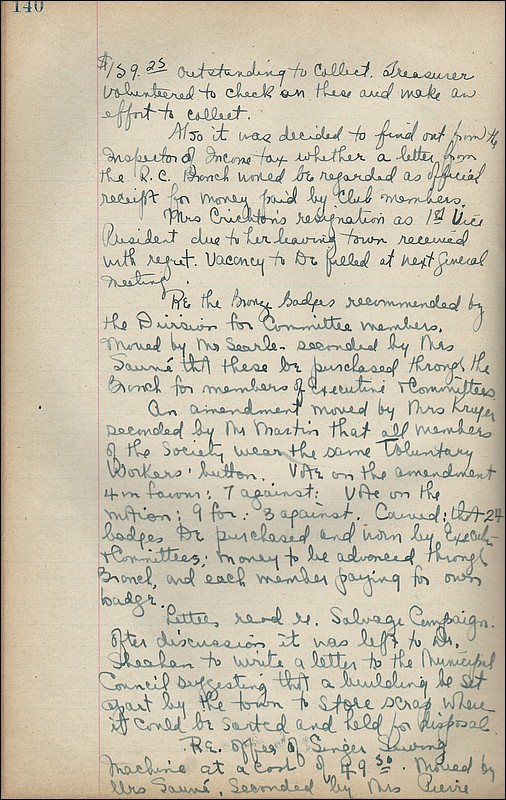 140
$159.25 outstanding to collect. Treasurer
volunteered to check on these and make an
effort to collect.
Also it was decided to find out from the
Inspector of Income tax whether a letter from
the R.C. Branch would be regarded as official
receipt for money paid by Club members.
Mrs Crichton's resignation as 1st Vice
President due to her leaving town received
with regret. Vacancy to be filled at next General
meeting.
Re the Bronze Badges recommended by
the Division for Committee members.
Moved by Mr Searle - seconded by Mrs
Sauvé that these be purchased through the
Branch for members of Executive & Committees.
An amendment moved by Mrs Kruger
seconded by Mr Martin that all members
of the Society wear the same Voluntary
Workers' button. Vote on the amendment
4 in favour; 7 against; Vote on the
motion; 9 for; 3 against. Carried; that 24
badges be purchased and worn by Executive
& Committees; money to be advanced through
Branch, and each member paying for own
badge.
Letter read re. Salvage Campaign:
After discussion it was left to Dr.
Sheahan to write a letter to the Municipal
Council suggesting that a building be set
apart by the town to store scrap where
it could be sorted and held for disposal.
Re. offer of Singer Sewing
Machine at a cost of 49.50. Moved by
Mrs Sauvé, Seconded by Mrs